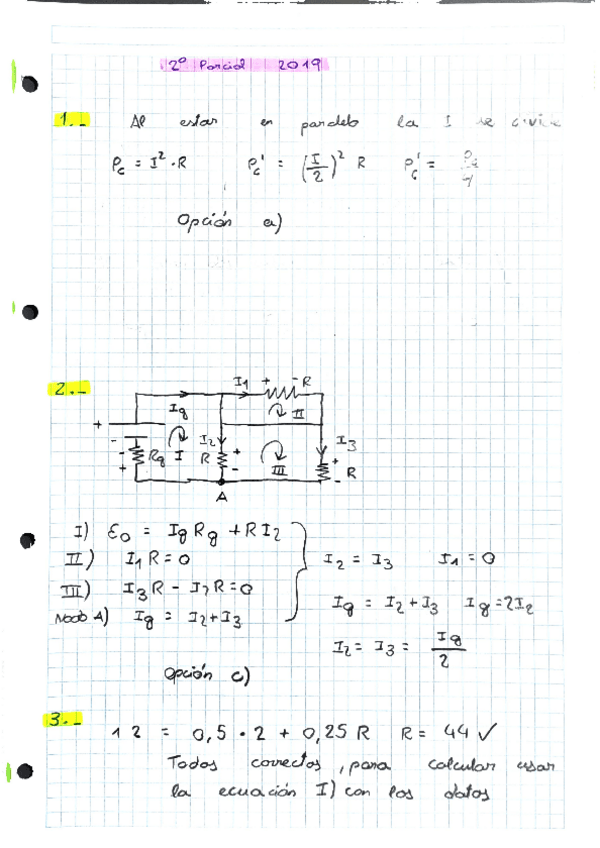 2º Parcial 2019
1.- Al estar en paralelo la I se divide
Pc = I² · R   Pc' = (I/2)² R   Pc' = Pc/4
Opción a)
2.-
I1 + - R
+ Ig II
- I2 I3
- Rg I R + III + R
+ - -
A
I) ε0 = Ig Rg + R I2
II) I1 R = 0   I2 = I3   I1 = 0
III) I3 R - I2 R = 0   Ig = I2 + I3   Ig = 2I2
Nodo A) Ig = I2 + I3   I2 = I3 = Ig/2
Opción c)
3.- 12 = 0,5 · 2 + 0,25 R   R = 44 ✓
Todos correctos, para calcular usar
la ecuación I) con los datos